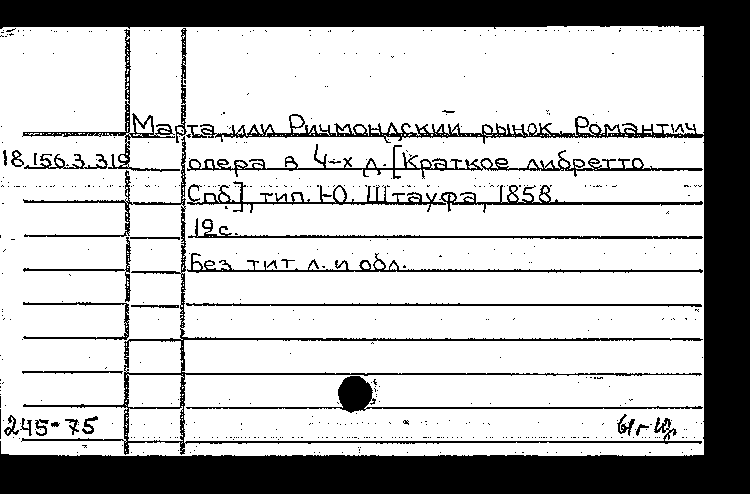 Марта, или Ричмондский рынок. Романтич
18.156.3.319 опера в 4-х д. [Краткое либретто.
Спб.], тип. Ю. Штауфа, 1858.
12 с.
Без тит. л. и обл.
245-75